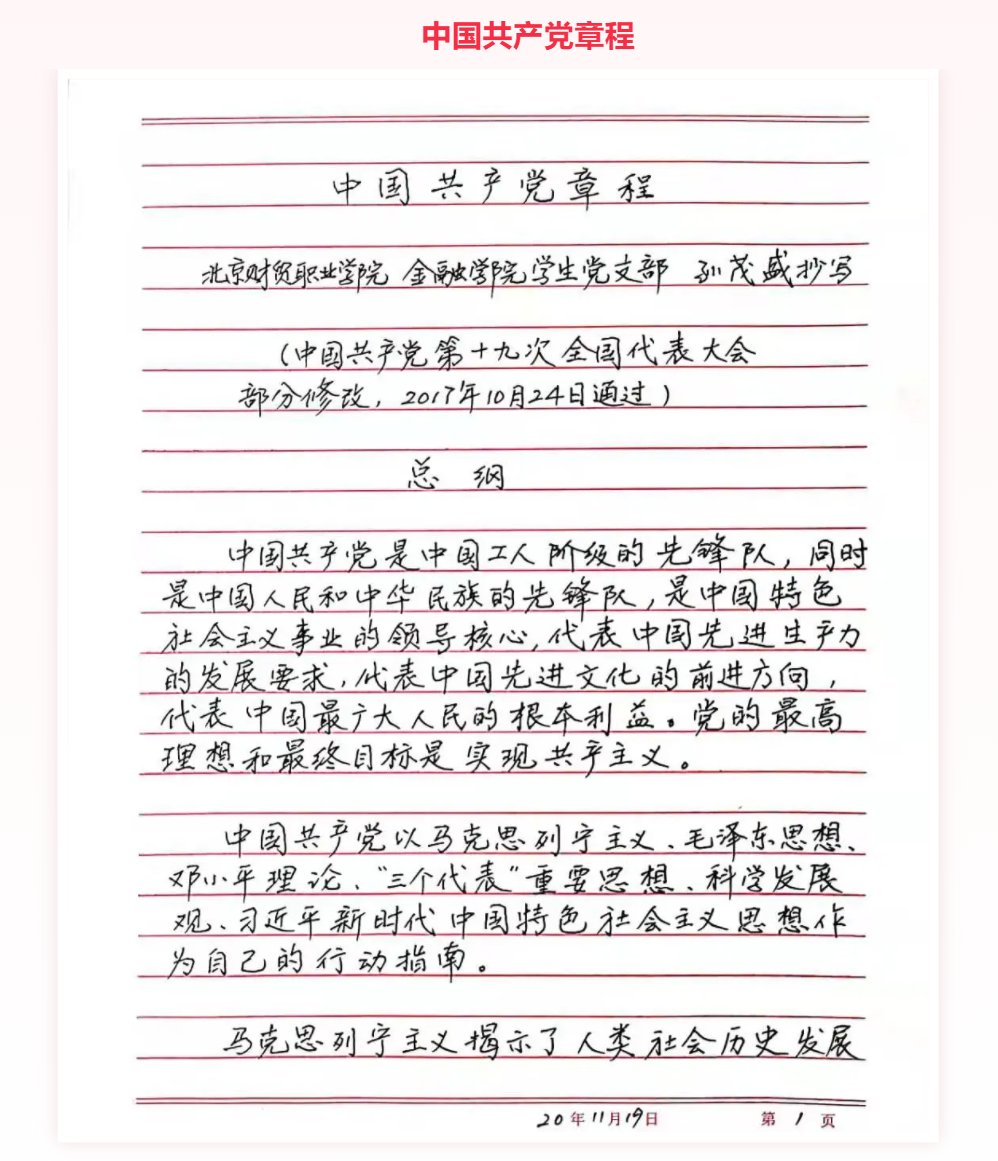 中国共产党章程
中国共产党章程
北京财贸职业学院 金融学院学生党支部 孙茂盛抄写
(中国共产党第十九次全国代表大会
部分修改,2017年10月24日通过)
总 纲
中国共产党是中国工人阶级的先锋队,同时
是中国人民和中华民族的先锋队,是中国特色
社会主义事业的领导核心,代表中国先进生产力
的发展要求,代表中国先进文化的前进方向,
代表中国最广大人民的根本利益。党的最高
理想和最终目标是实现共产主义。
中国共产党以马克思列宁主义、毛泽东思想、
邓小平理论、“三个代表”重要思想、科学发展
观、习近平新时代中国特色社会主义思想作
为自己的行动指南。
马克思列宁主义揭示了人类社会历史发展
20年11月19日 第1页